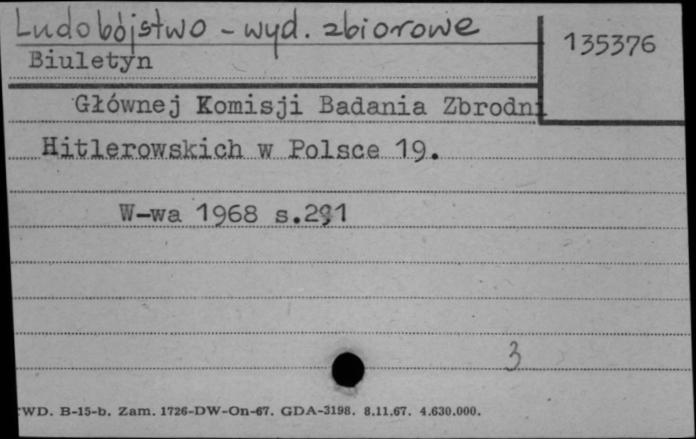 Ludobójstwo - wyd. zbiorowe
135376
Biuletyn
Głównej Komisji Badania Zbrodni
Hitlerowskich w Polsce 19.
W-wa 1968 s.291
3
WD. B-15-b. Zam. 1726-DW-On-67. GDA-3198. 8.11.67. 4.630.000.